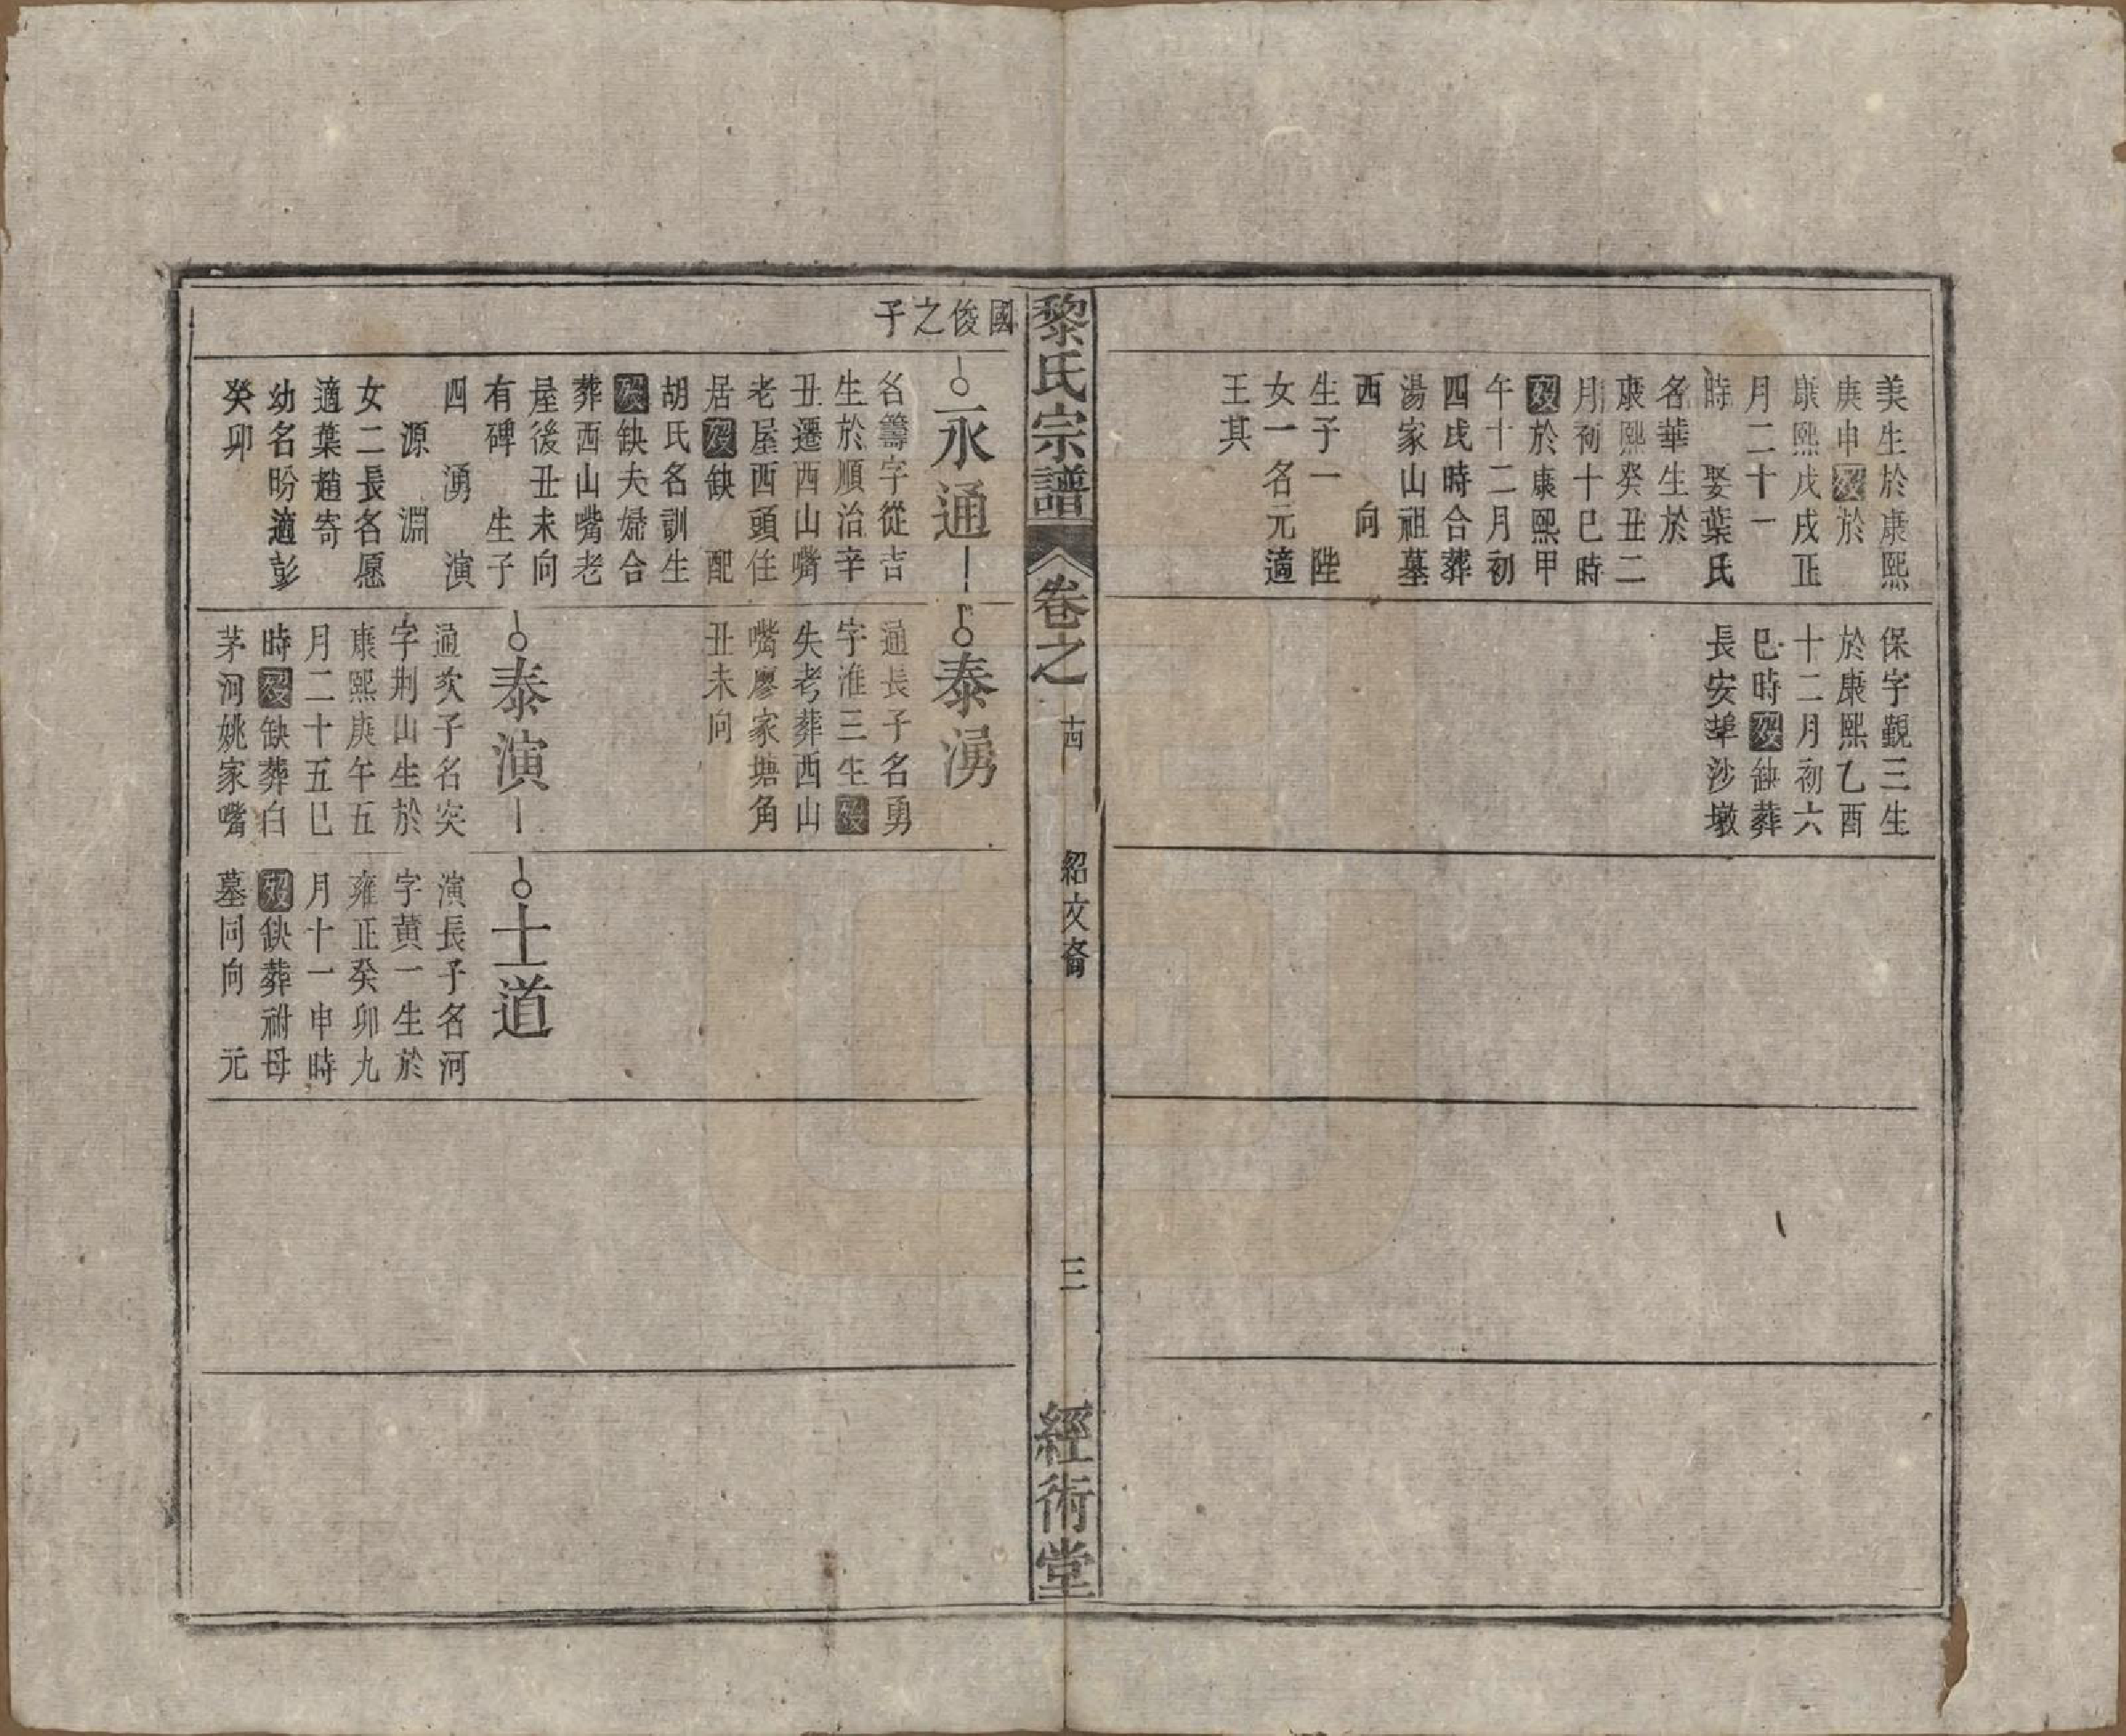 美生於康熙
庚申歿於
康熙戊戌正
月二十一
時 娶葉氏
名華生於
康熙癸丑二
月初十巳時
歿於康熙甲
午十二月初
四戌時合葬
湯家山祖墓
西 向
生子一 陞
女一名元適
王其
保字覲三生
於康熙乙酉
十二月初六
巳時歿缺葬
長安埠沙墩
黎氏宗譜
卷之
古
紹文裔
三
經術堂
國俊之子
永通
名籌字從吉
生於順治辛
丑遷西山嘴
老屋西頭住
居歿缺 配
胡氏名訓生
歿缺夫婦合
葬西山嘴老
屋後丑未向
有碑 生子
四 湧 演
源 淵
女二長名愿
適葉趙寄
幼名盼適彭
癸卯
泰湧
通長子名勇
字淮三生歿
失考葬西山
嘴廖家塘角
丑未向
泰演
通次子名突
字荆山生於
康熙庚午五
月二十五巳
時歿缺葬白
茅河姚家嘴
士道
演長子名河
字黄一生於
雍正癸卯九
月十一申時
歿缺葬祔母
墓同向 元